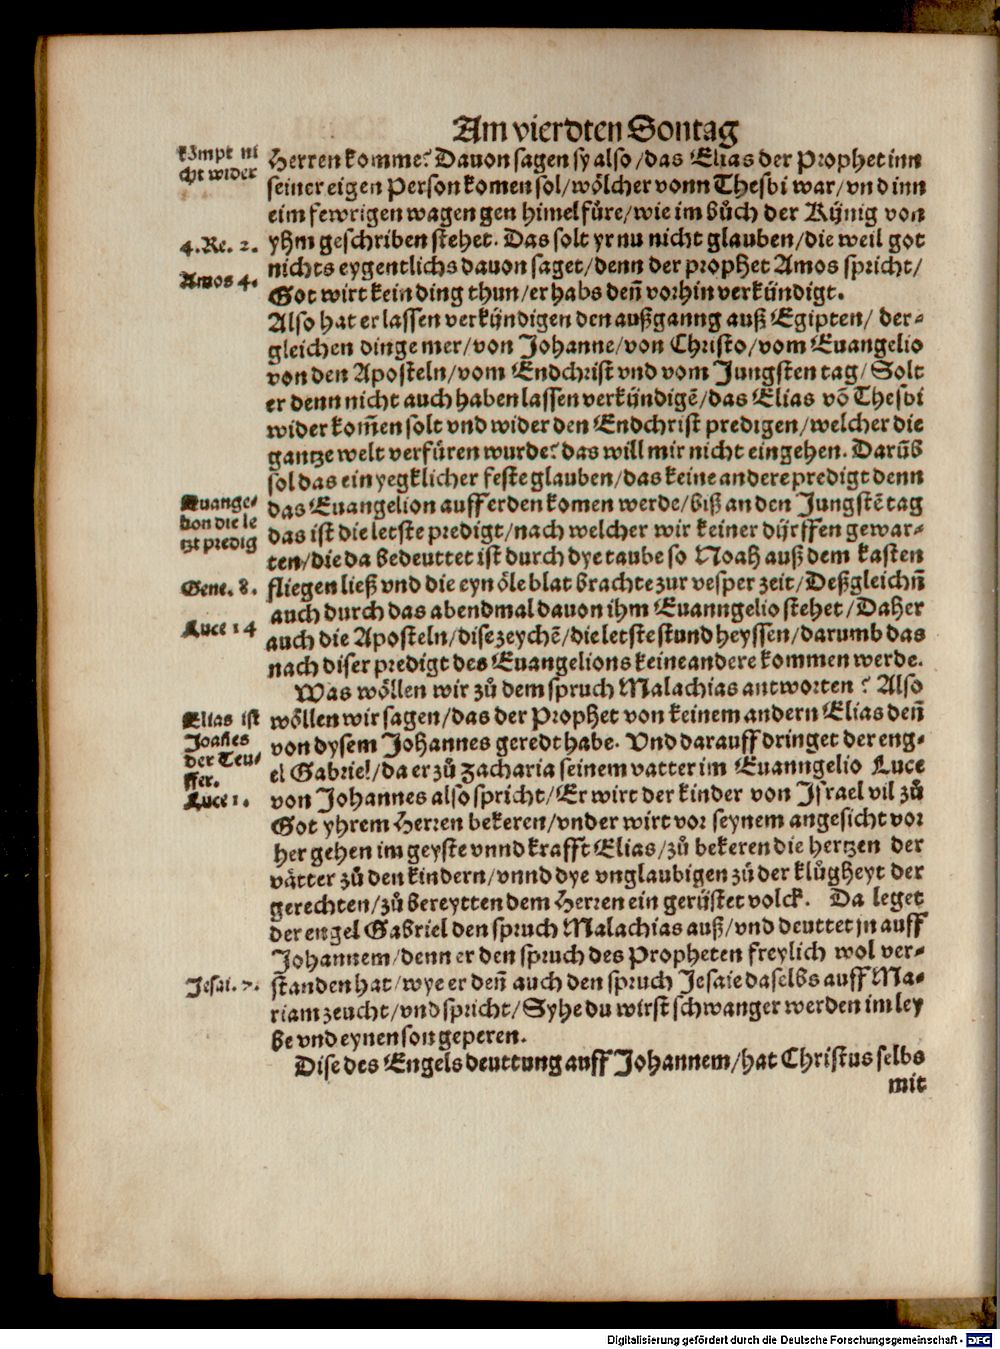 Am vierdten Sontag
kömpt ni
cht wider
Herren komme? Dauon sagen sy also/das Elias der Prophet inn
seiner eigen Person komen sol/wölcher vonn Thesbi war/vnd inn
eim fewrigen wagen gen himel füre/wie im bůch der Künig von
4.Re. 2.
yhm geschriben stehet. Das solt yr nu nicht glauben/die weil got
Amos 4.
nichts eygentlichs dauon saget/denn der prophet Amos spricht/
Got wirt kein ding thun/er habs deñ vorhin verkündigt.
Also hat er lassen verkündigen den außganng auß Egipten/ der-
gleichen dinge mer/von Johanne/von Christo/vom Euangelio
von den Aposteln/vom Endchrist vnd vom Jungsten tag/Solt
er denn nicht auch haben lassen verkündigē/das Elias võ Thesbi
wider kom̃en solt vnd wider den Endchrist predigen/welcher die
gantze welt verfüren wurde? das will mir nicht eingehen. Darũb
sol das ein yegklicher feste glauben/das keine andere predigt denn
Euange-
lion die le
tzt predig
das Euangelion auff erden komen werde/biß an den Jungstē tag
das ist die letste predigt/nach welcher wir keiner dürffen gewar-
ten/die da bedeuttet ist durch dye taube so Noah auß dem kasten
Gene. 8.
fliegen ließ vnd die eyn öle blat brachte zur vesper zeit/Deßgleichñ
auch durch das abendmal dauon ihm Euanngelio stehet/Daher
Luce 14
auch die Aposteln/dise zeychē/die letste stund heyssen/darumb das
nach diser predigt des Euangelions keine andere kommen werde.
Was wöllen wir zů dem spruch Malachias antworten? Also
Elias ist
Joañes
der Teu-
ffer.
wöllen wir sagen/das der Prophet von keinem andern Elias deñ
von dysem Johannes geredt habe. Vnd darauff dringet der eng-
el Gabriel/da er zů Zacharia seinem vatter im Euanngelio Luce
Luce 1.
von Johannes also spricht/Er wirt der kinder von Israel vil zů
Got yhrem Herren bekeren/vnd er wirt vor seynem angesicht vor
her gehen im geyste vnnd krafft Elias/zů bekeren die hertzen der
vätter zů den kindern/vnnd dye vnglaubigen zů der klůgheyt der
gerechten/zů bereytten dem Herren ein gerüstet volck. Da leget
der engel Gabriel den spruch Malachias auß/vnd deuttet jn auff
Johannem/denn er den spruch des Propheten freylich wol ver-
Jesai. 7.
standen hat/wye er deñ auch den spruch Jesaie daselbs auff Ma-
riam zeucht/vnd spricht/Syhe du wirst schwanger werden im ley
be vnd eynen son geperen.
Dise des Engels deuttung auff Johannem/hat Christus selbs
mit
Digitalisierung gefördert durch die Deutsche Forschungsgemeinschaft - DFG